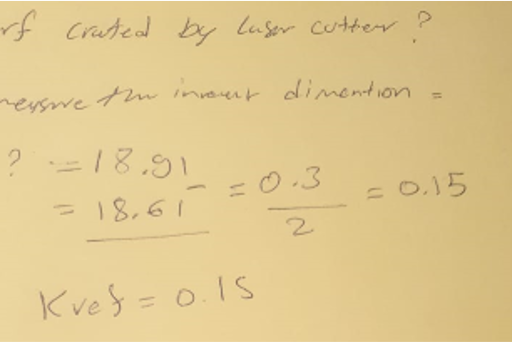 rf crated by laser cutter ?
measure the inner dimention =
? = 18.91
= 18.61 - = 0.3 / 2 = 0.15
Kref = 0.15